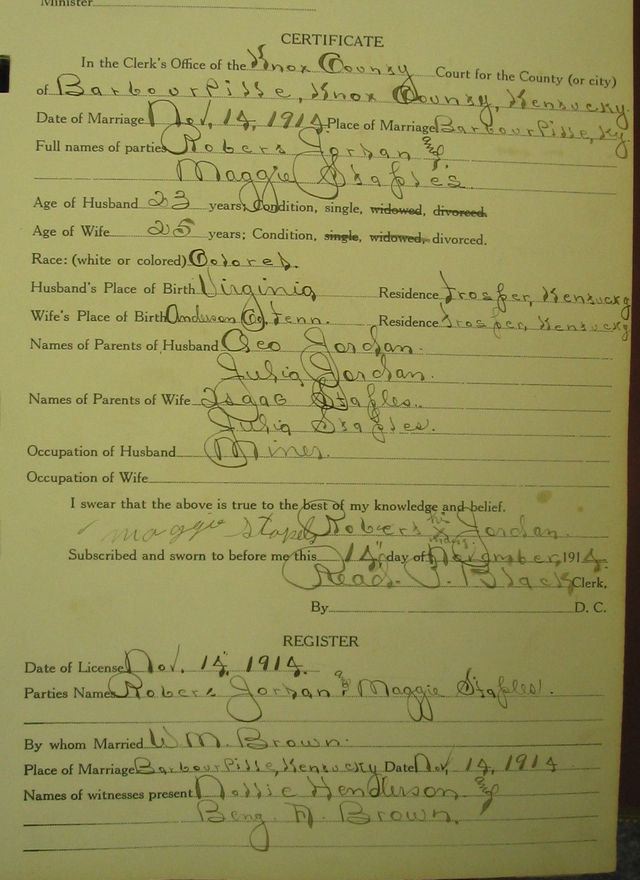 Minister
CERTIFICATE
In the Clerk's Office of the Knox County Court for the County (or city)
of Barbourville, Knox County, Kentucky
Date of Marriage Nov. 14, 1914 Place of Marriage Barbourville, Ky.
Full names of parties Robert Jordan and
Maggie Staples
Age of Husband 23 years; Condition, single, widowed, divorced.
Age of Wife 25 years; Condition, single, widowed, divorced.
Race: (white or colored) Colored.
Husband's Place of Birth Virginia Residence Trosper, Kentucky
Wife's Place of Birth Anderson Co, Tenn. Residence Trosper, Kentucky
Names of Parents of Husband Geo Jordan.
Julia Jordan.
Names of Parents of Wife Isaac Staples.
Julia Staples.
Occupation of Husband Miner.
Occupation of Wife
I swear that the above is true to the best of my knowledge and belief.
maggie stapels Robert his x mark Jordan.
Subscribed and sworn to before me this 14, day of November, 1914.
Read P. Black Clerk.
By D. C.
REGISTER
Date of License Nov. 14, 1914.
Parties Names Robert Jordan & Maggie Staples.
By whom Married W M. Brown.
Place of Marriage Barbourville, Kentucky Date Nov, 14, 1914
Names of witnesses present Henderson and
Brown.